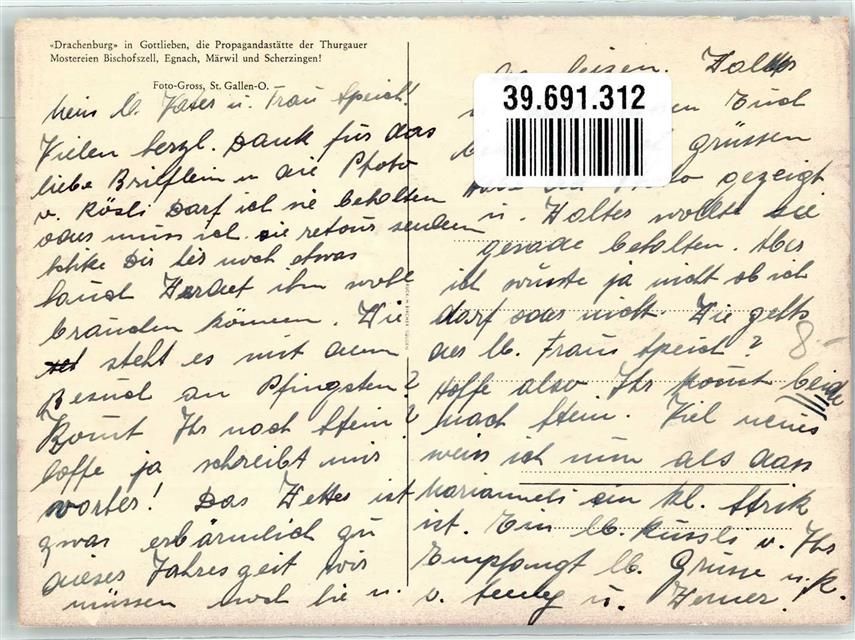 «Drachenburg» in Gottlieben, die Propagandastätte der Thurgauer
Mostereien Bischofszell, Egnach, Märwil und Scherzingen!
Foto-Gross, St. Gallen-O.
Mein lb. Vater u. Frau Speich!
Vielen herzl. Dank für das
liebe Brieflein u die Photo
v. Rösli Darf ich sie behalten
oder muss ich sie retour senden
schike Dir hir noch etwas
ihr wohl
brauchen können. Wie
steht es mit dem
Besuch an Pfingsten?
Komt Ihr nach Stein?
hoffe ja schreibt mir
vorher! Das Wetter ist
zwar erbärmlich zu
dieser Jahreszeit wir
müssen noch hie u.
da heizen.
Euch
grüssen
gezeigt
u. wollte sie
gerade behalten. Aber
ich wusste ja nicht ob ich
darf oder nicht. Wie gehts
der lb. Frau Speich?
Hoffe also Ihr komt beide
nach Stein. Viel neues
weiss ich nun als dass
Marianneli ein kl. Strik
ist. Ein lb. Küssli v. Ihr
Empfangt lb. Grüsse u. K.
v. u. Werner.
39.691.312
8.-